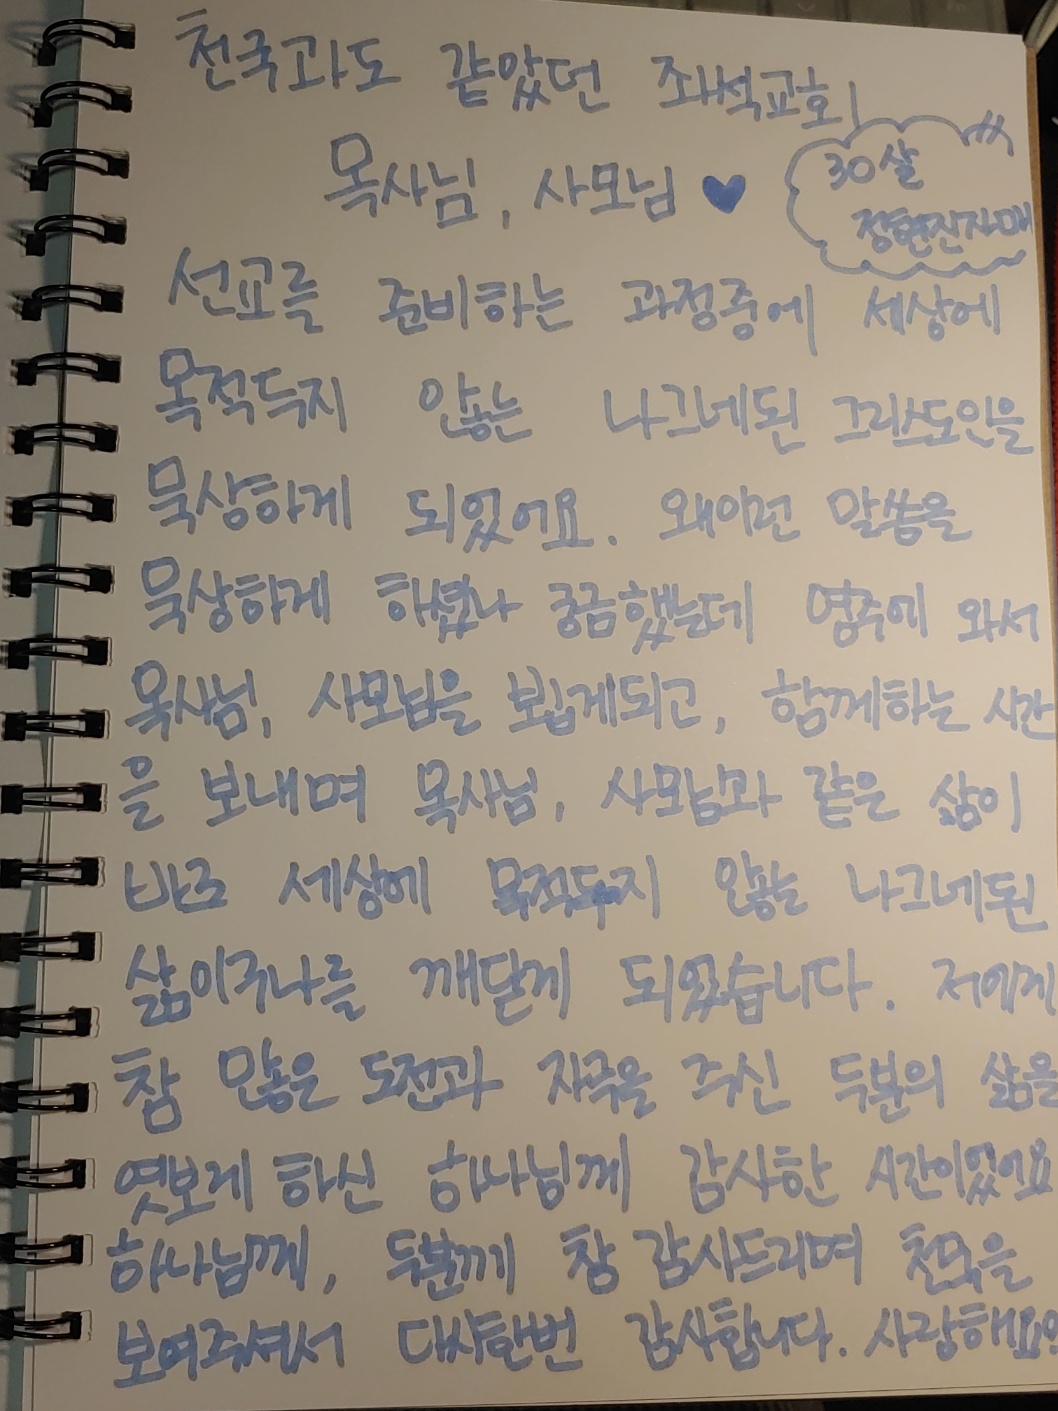 천국과도 같았던 좌석교회
목사님, 사모님 ♥
30살
정현진자매
선교를 준비하는 과정중에 세상에
목적두지 않는 나그네된 그리스도인을
묵상하게 되었어요. 왜이런 말씀을
묵상하게 하셨나 궁금했는데 영주에 와서
목사님, 사모님을 뵙게되고, 함께하는 시간
을 보내며 목사님, 사모님과 같은 삶이
바로 세상에 목적두지 않는 나그네된
삶이구나를 깨닫게 되었습니다. 저에게
참 많은 도전과 자극을 주신 두분의 삶을
엿보게 하신 하나님께 감사한 시간이었어요
하나님께, 두분께 참 감사드리며 천국을
보여주셔서 다시한번 감사합니다. 사랑해요